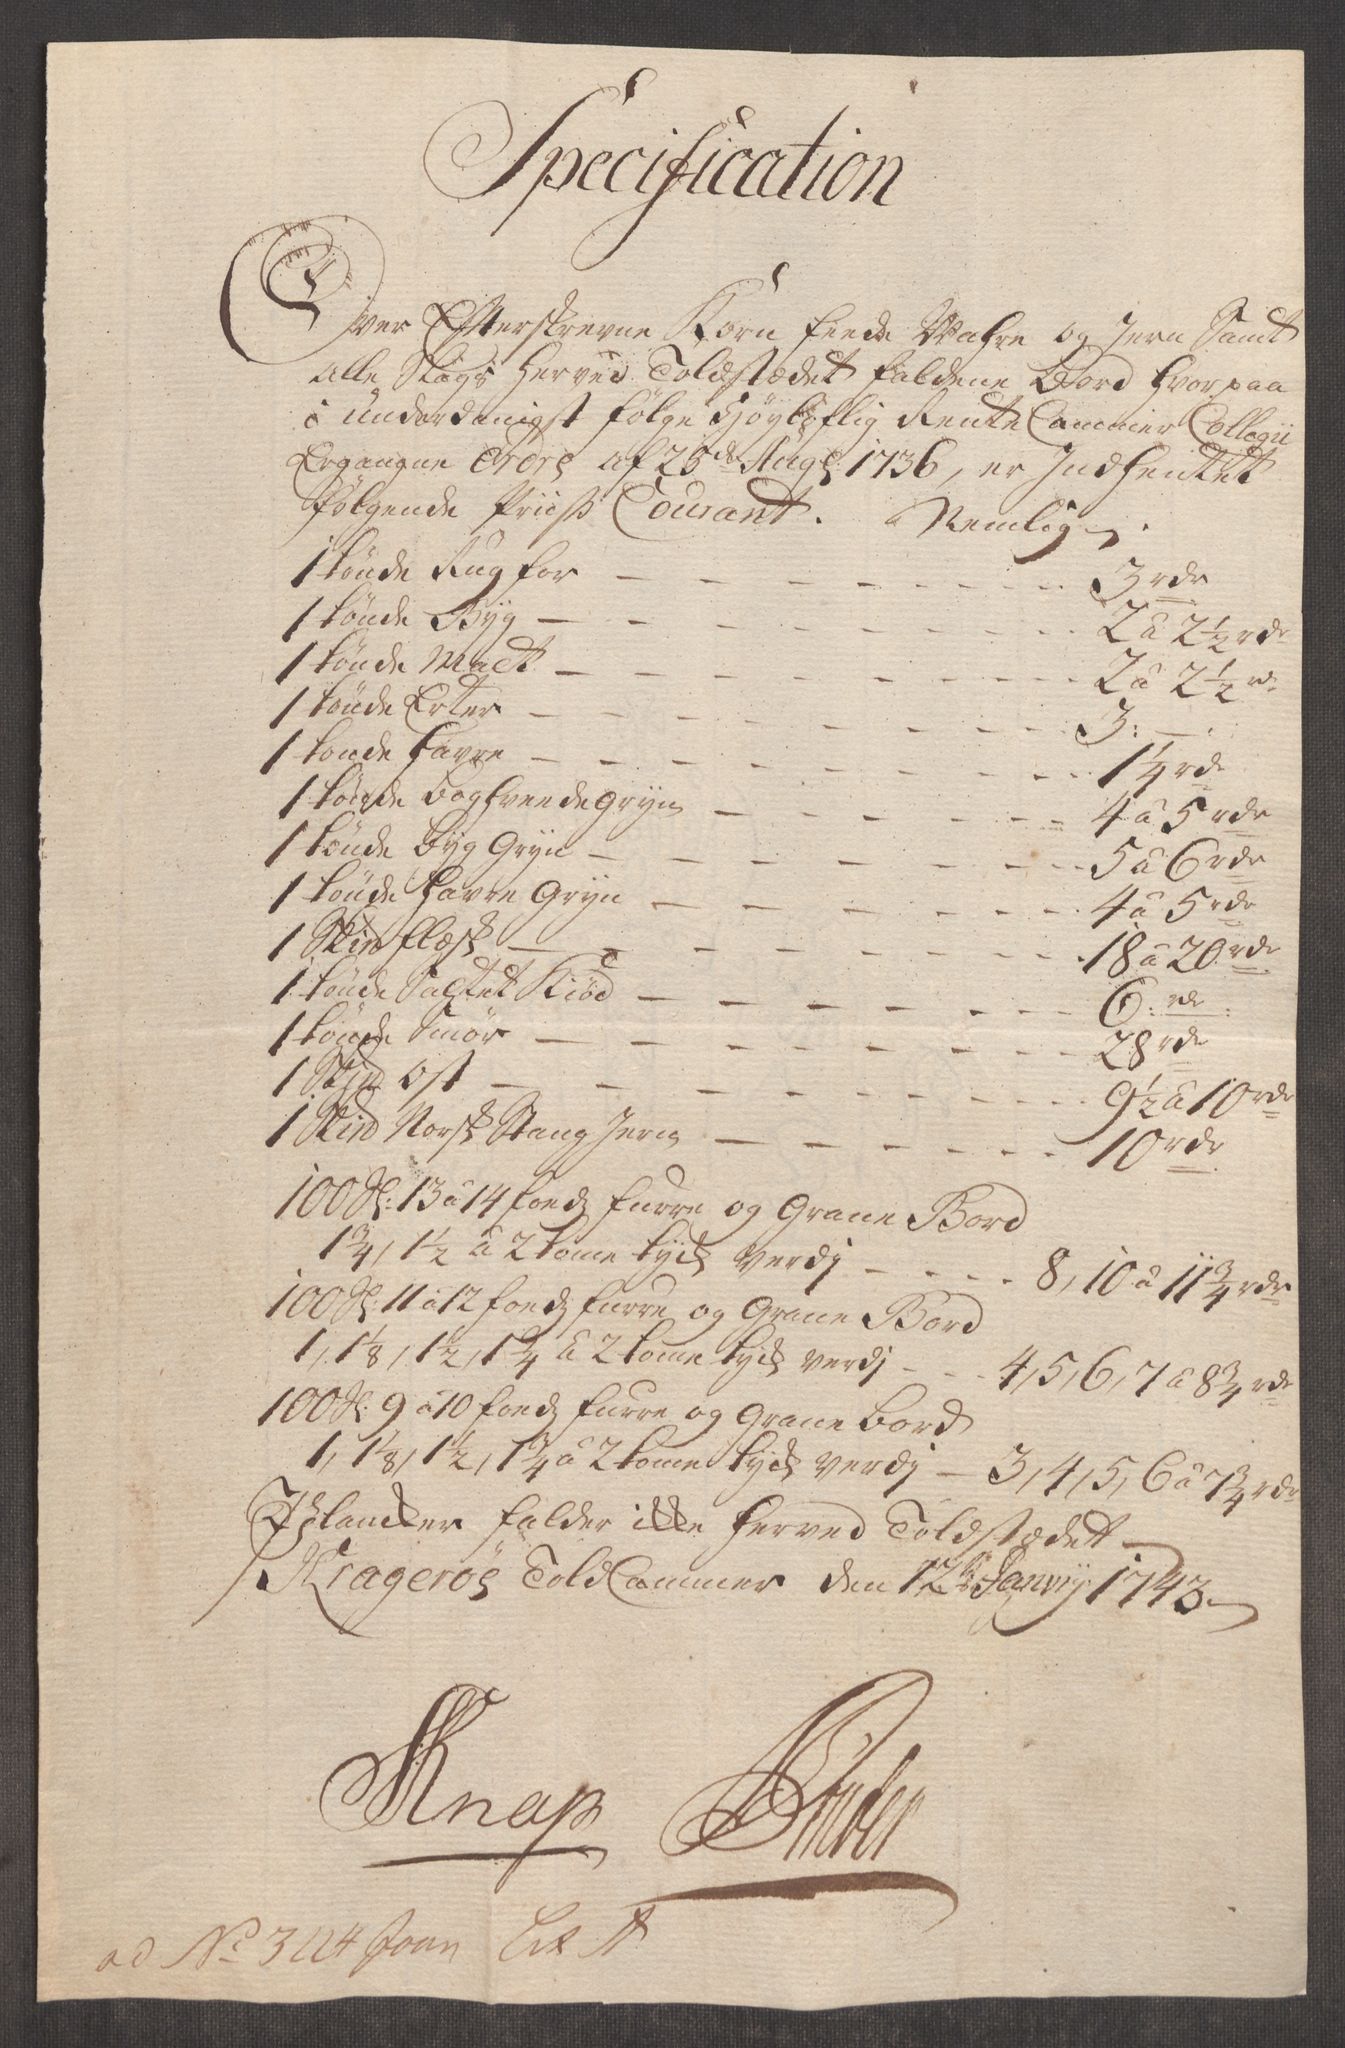 Specification
Over Efterskrevne Korn feede Wahre og Jern Samt
alle Slags herved Toldstædet faldene Bord hvorpaa
i underdanigst følge Høyløflig Rente Cammer Collegii
Ergangne Ordre af 25de Aug: 1736, er Indhentet
følgende Priis Courant. Nemlig
1 tönde Rug for - - - 3 rdr
1 tönde Byg - - - 2 â 2 1/2 rdr
1 tönde Malt - - - 2 â 2 1/2 rdr
1 tönde Erter - - - 3:
1 tonde havre - - - 1 1/4 rdr
1 tönde boghveedegryn - - - 4 â 5 rdr
1 tönde byg Gryn - - - 5 â 6 rdr
1 tönde havre Gryn - - - 4 â 5 rdr
1 Skið flæsk - - - 18 â 20 rdr
1 tönde Saltet Kiöd - - - 6: rdr
1 tönde Smör - - - 28 rdr
1 Skið Ost - - - 9 1/2 â 10 rdr
1 Skið Norsk Stang Jern - - - 10 rdr
100 st: 13 â 14 foeds furre og Grane Bord
1 3/4, 1 1/2 â 2 tome tyck verdj - - - 8, 10 â 11 3/4 rdr
100 st: 11 â 12 foeds furre og Grane Bord
1, 1 1/8, 1 1/2, 1 3/4 â 2 tome tyck verdj - - 4, 5, 6, 7 â 8 3/4 rdr
100 st: 9 â 10 foeds furre og Grane bord
1, 1 1/8, 1 1/2, 1 3/4 â 2 tome tyck verdj - 3, 4, 5, 6 â 7 3/4 rdr
Islander falder ikke herved Toldstædet
Krageröe Told Cammer den 12te Janvij 1743
Knap
ad No 3114